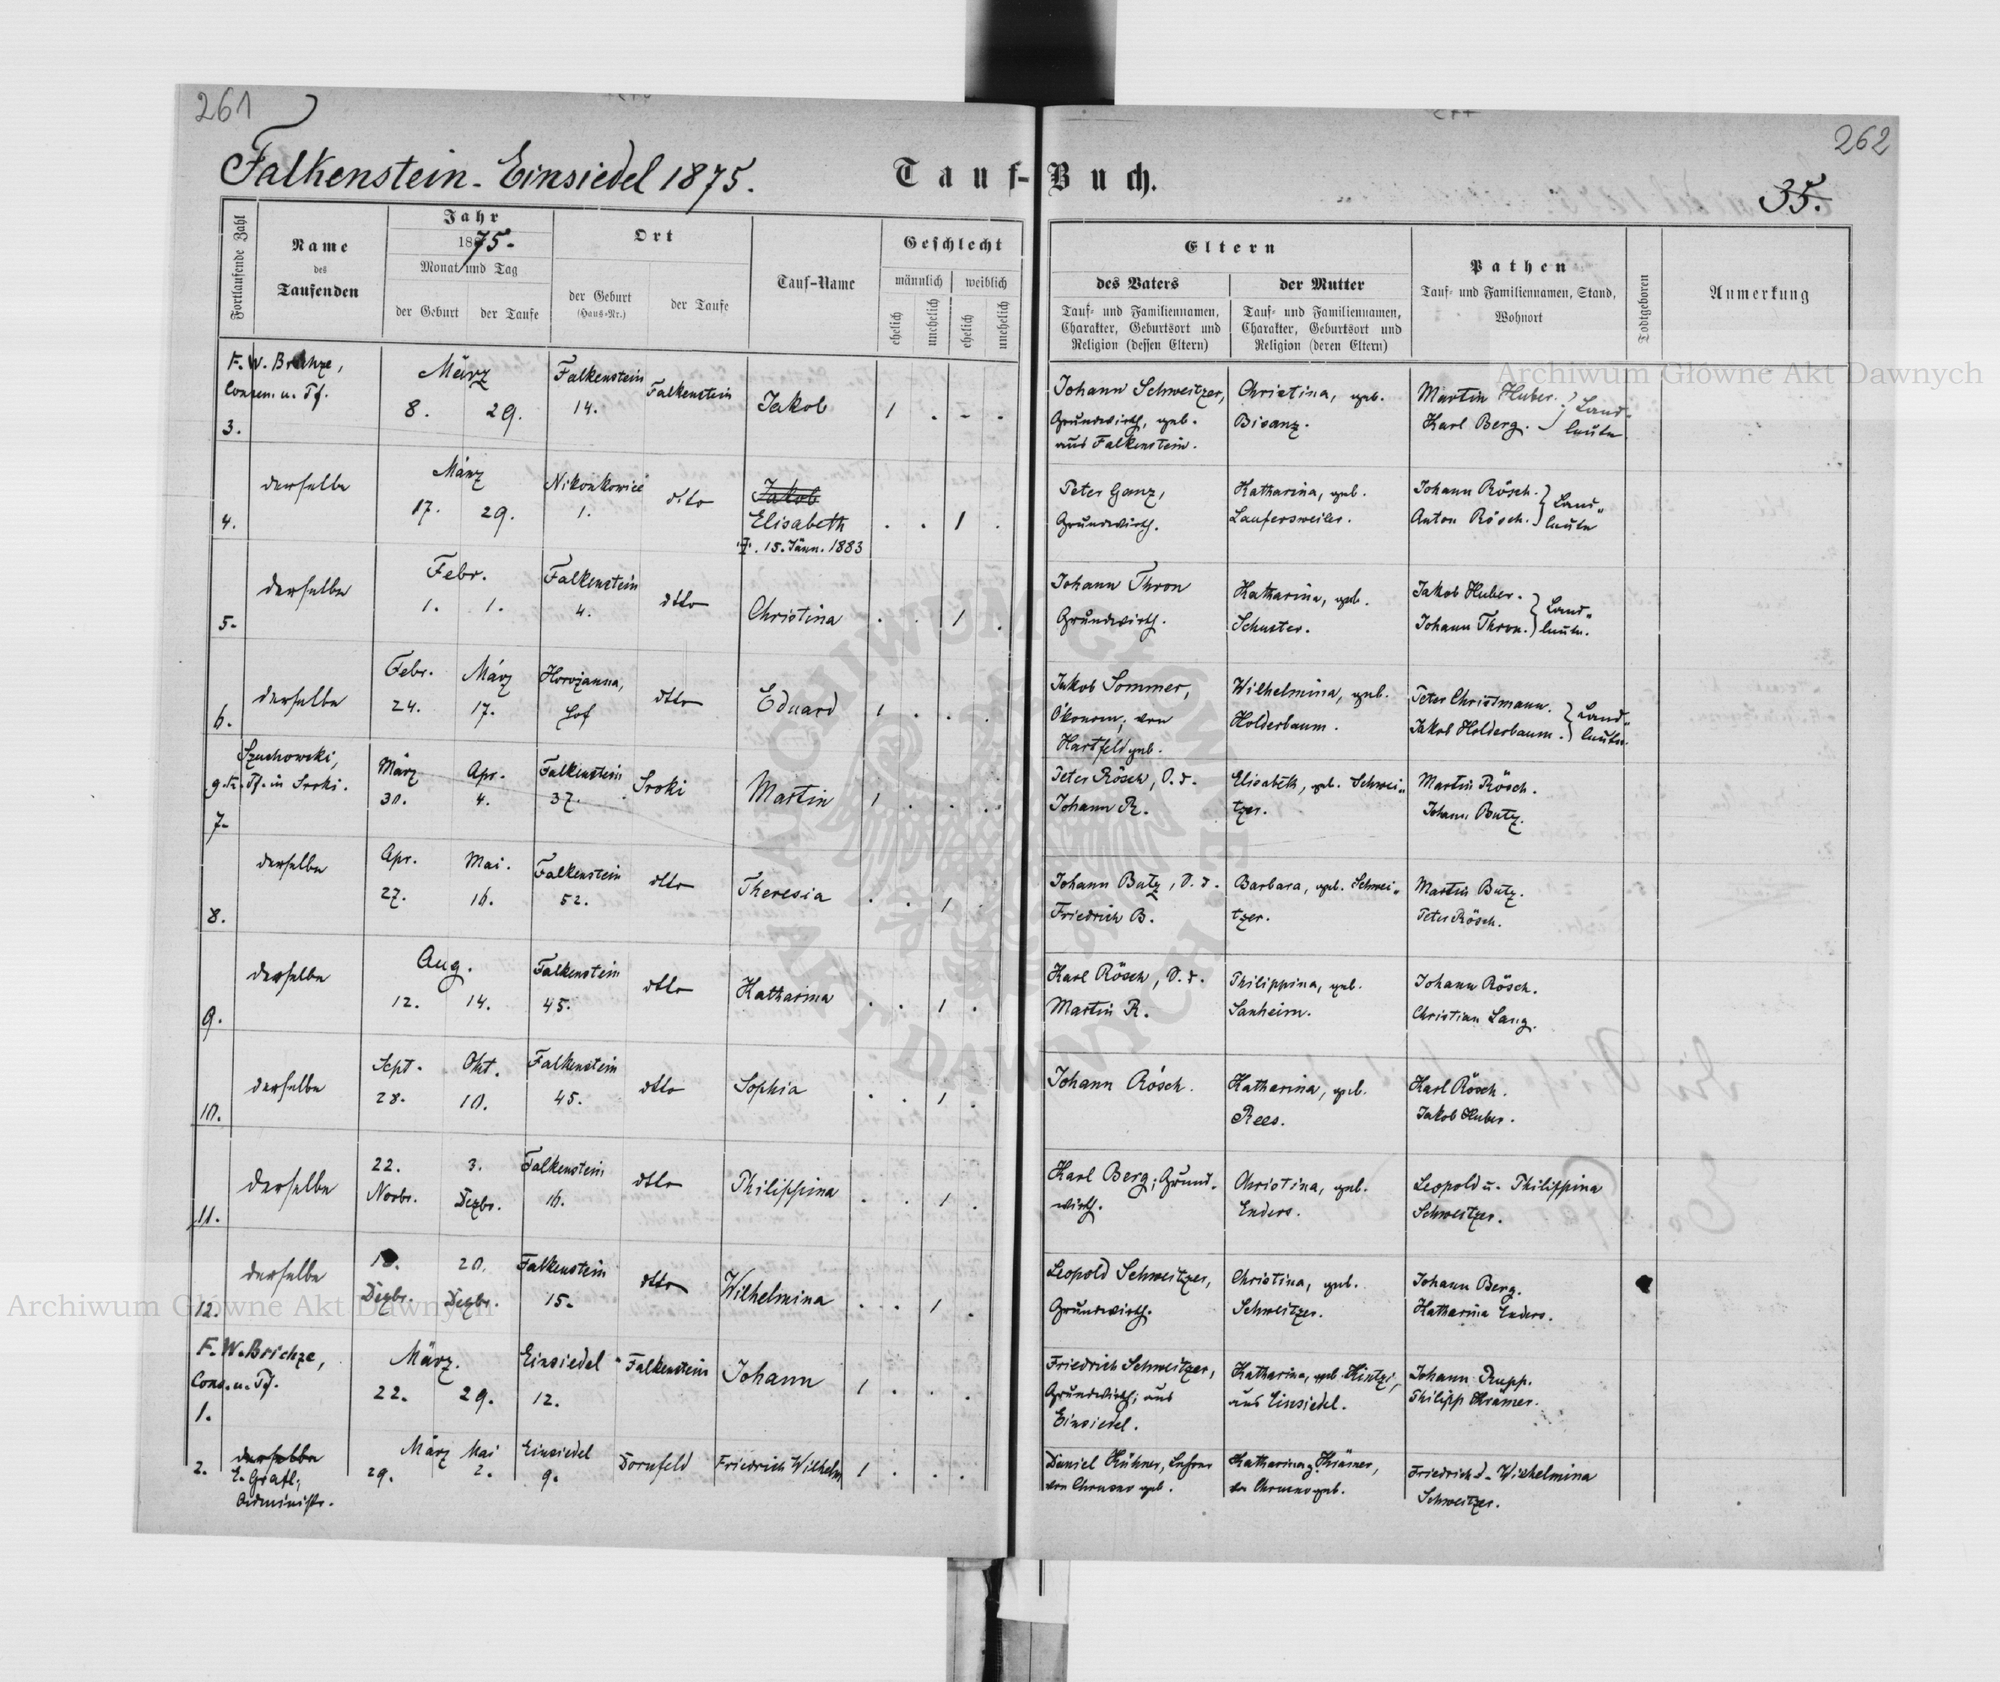 261
262
Falkenstein-Einsiedel 1875.
Tauf-Buch.
35.
Fortlaufende Zahl
Name
des
Taufenden
Jahr
1875.
Monat und Tag
der Geburt
der Taufe
Ort
der Geburt
(Haus-Nr.)
der Taufe
Tauf-Name
Geschlecht
männlich
weiblich
ehelich
unehelich
ehelich
unehelich
Eltern
des Vaters
Tauf- und Familiennamen,
Charakter, Geburtsort und
Religion (dessen Eltern)
der Mutter
Tauf- und Familiennamen,
Charakter, Geburtsort und
Religion (deren Eltern)
Pathen
Tauf- und Familiennamen, Stand,
Wohnort
Todtgeboren
Anmerkung
3.
F. W.
u. Pf.
März
8. 29.
Falkenstein
14.
Falkenstein
Jakob
1 . - .
Johann Schweitzer,
Grundwirth, geb.
aus Falkenstein.
Christina, geb.
Bisanz.
Martin Huber.
Karl Berg.
Land-
leute
4.
derselbe
März
17. 29.
1.
dtto
Jakob
Elisabeth
†. 15. Jänn. 1883
. . 1 .
Peter Ganz,
Grundwirth.
Katharina, geb.
Laufersweiler.
Johann Rösch.
Anton Rösch.
Land-
leute
5.
derselbe
Febr.
1. 1.
Falkenstein
4.
dtto
Christina
. . 1 .
Johann Thron
Grundwirth.
Katharina, geb.
Schuster.
Jakob Huber.
Johann Thron.
Land-
leute.
6.
derselbe
Febr. März
24. 17.
Hof
dtto
Eduard
1 . . .
Jakob Sommer,
Ökonom, von
Hartfeld geb.
Wilhelmina, geb.
Holderbaum.
Peter Christmann.
Jakob Holderbaum.
Land-
leute.
7.
Szuchowski,
Pf. in Sroki.
März Apr.
30. 4.
Falkenstein
37.
Sroki
Martin
1 . . .
Peter Rösch, S. d.
Johann R.
Elisabeth, geb. Schwei-
tzer.
Martin Rösch.
Johann Butz.
8.
derselbe
Apr. Mai.
27. 16.
Falkenstein
52.
dtto
Theresia
. . 1 .
Johann Butz, S. d.
Friedrich B.
Barbara, geb. Schwei-
tzer.
Martin Butz.
Peter Rösch.
9.
derselbe
Aug.
12. 14.
Falkenstein
45.
dtto
Katharina
. . 1 .
Karl Rösch, S. d.
Martin R.
Philippina, geb.
Sanheim.
Johann Rösch.
Christian Lang.
10.
derselbe
Sept. Okt.
28. 10.
Falkenstein
45.
dtto
Sophia
. . 1 .
Johann Rösch.
Katharina, geb.
Rees.
Karl Rösch.
Jakob Huber.
11.
derselbe
22. 3.
Novbr. Dezbr.
Falkenstein
16.
dtto
Philippina
. . 1 .
Karl Berg, Grund-
wirth.
Christina, geb.
Enders.
Leopold u. Philippina
Schweitzer.
12.
derselbe
20.
Dezbr. Dezbr.
Falkenstein
15.
dtto
Wilhelmina
. . 1 .
Leopold Schweitzer,
Grundwirth.
Christina, geb.
Schweitzer.
Johann Berg.
Katharina Enders.
1.
F. W.
Cons. u. Pf.
März.
22. 29.
Einsiedel
12.
Falkenstein
Johann
1 . . .
Friedrich Schweitzer,
Grundwirth, aus
Einsiedel.
Katharina, geb. Hintzi,
aus Einsiedel.
Johann Rupp.
Philipp Krämer.
2.
derselbe
Administr.
März Mai
29. 2.
Einsiedel
9.
Dornfeld
Friedrich Wilhelm
1 . . .
Daniel Kühner, Lehrer
geb.
Katharina g. Krämer,
geb.
Friedrich u. Wilhelmina
Schweitzer.
Archiwum Główne Akt Dawnych
Archiwum Główne Akt Dawnych
ARCHIWUM GŁÓWNE
AKT DAWNYCH